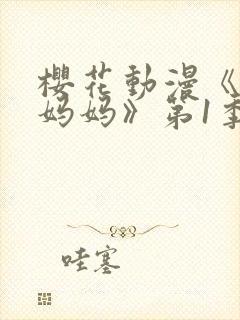 櫻花動漫《
妈妈》第1季
哇塞